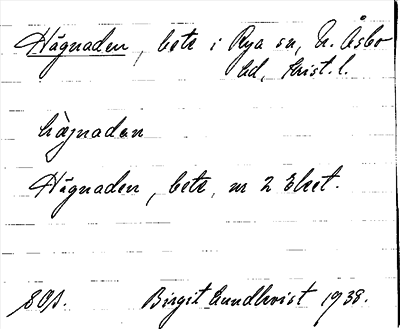 Hägnaden, bete i Rya sn, N. Åsbo
hd, Krist. l.
hägnadən
Hägnaden, bete, nr 2 Elset.
Birgit Lundkvist 1938.